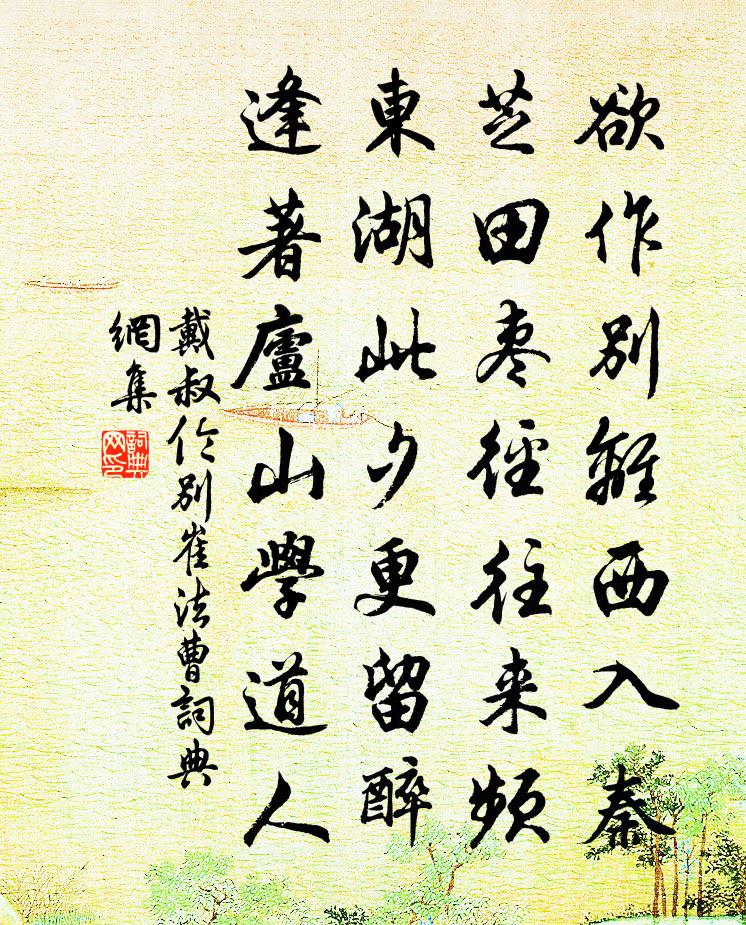 欲作別離西入秦
芝田枣徑往来頻
東湖此夕更留醉
逢著廬山學道人
戴叔伦別崔法曹詞典
網集
詞典
网印